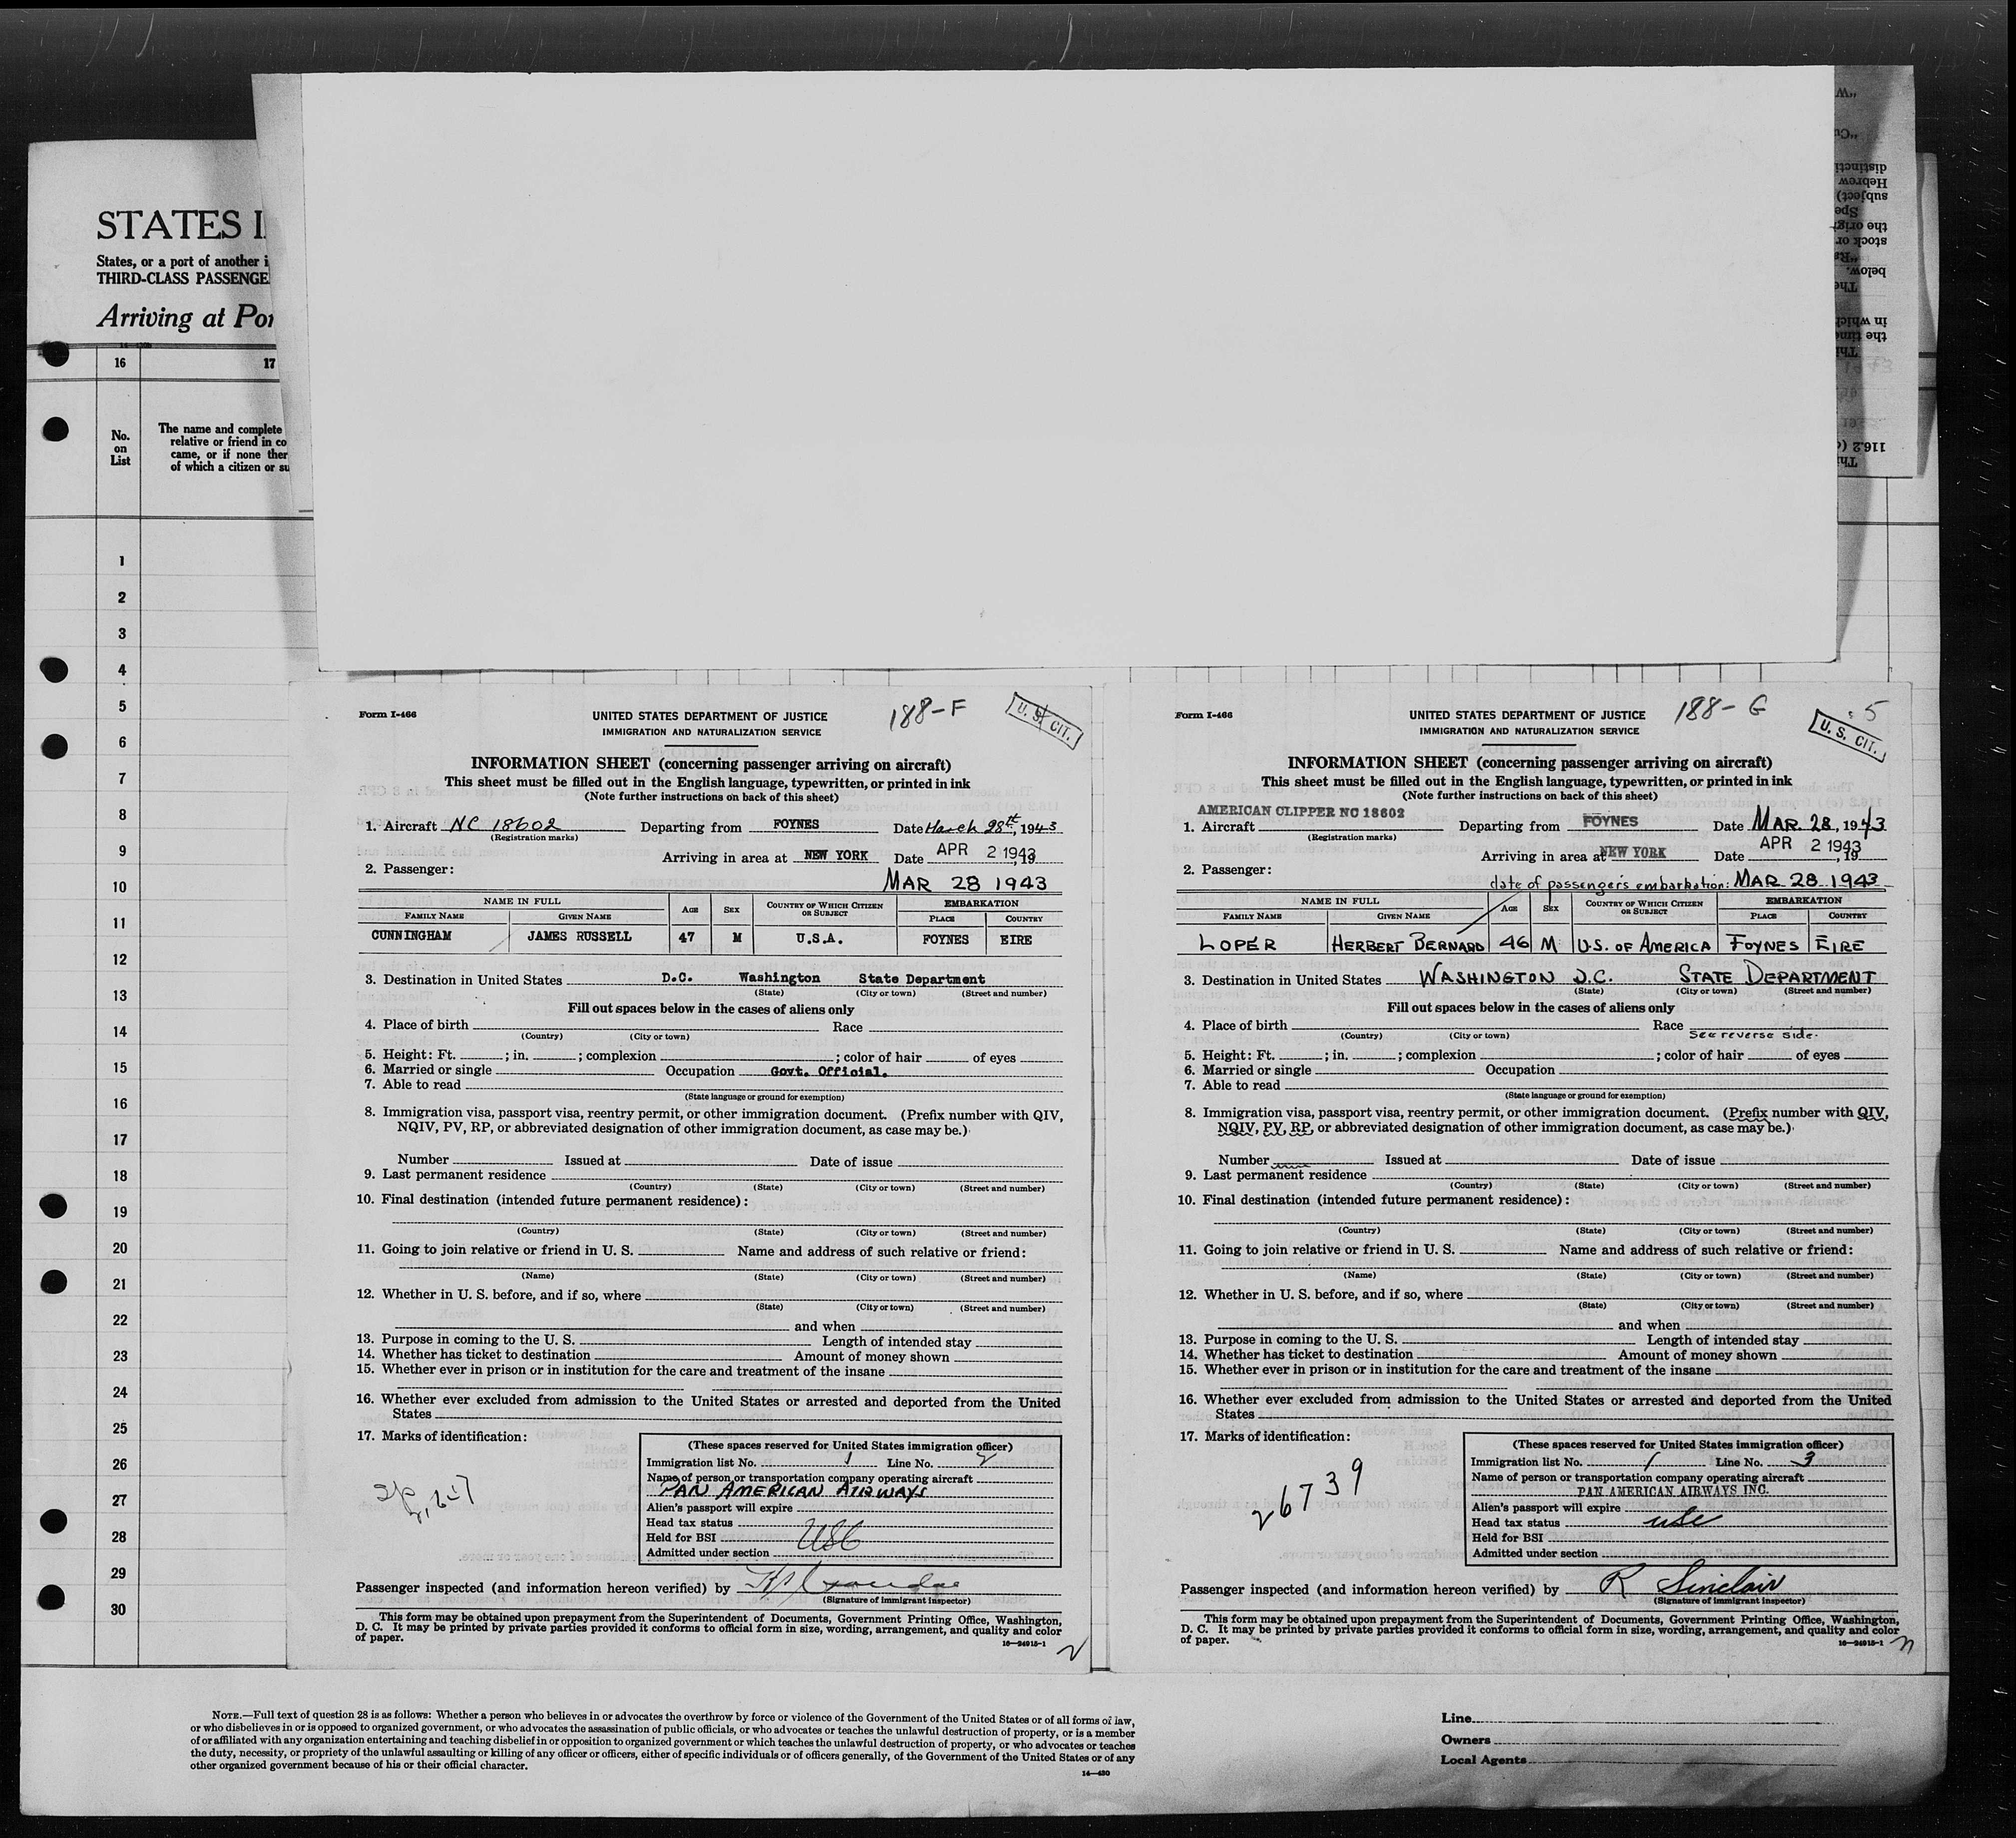 STATES I
States, or a port of another i
THIRD-CLASS PASSENGE
Arriving at Por
16 17
No. on List
The name and complete
relative or friend in co
came, or if none ther
of which a citizen or su
1
2
3
4
5
6
7
8
9
10
11
12
13
14
15
16
17
18
19
20
21
22
23
24
25
26
27
28
29
30
Form I-466
188-F
U. S. CIT.
UNITED STATES DEPARTMENT OF JUSTICE
IMMIGRATION AND NATURALIZATION SERVICE
INFORMATION SHEET (concerning passenger arriving on aircraft)
This sheet must be filled out in the English language, typewritten, or printed in ink
(Note further instructions on back of this sheet)
1. Aircraft NC 18602 Departing from FOYNES Date March 28th, 1943
(Registration marks)
Arriving in area at NEW YORK Date APR 2 1943, 19
2. Passenger: MAR 28 1943
NAME IN FULL AGE SEX COUNTRY OF WHICH CITIZEN OR SUBJECT EMBARKATION
FAMILY NAME GIVEN NAME PLACE COUNTRY
CUNNINGHAM JAMES RUSSELL 47 M U.S.A. FOYNES EIRE
3. Destination in United States D.C. Washington State Department
(State) (City or town) (Street and number)
Fill out spaces below in the cases of aliens only
4. Place of birth Race
(Country) (City or town)
5. Height: Ft. ; in. ; complexion ; color of hair of eyes
6. Married or single Occupation Govt. Official.
7. Able to read
(State language or ground for exemption)
8. Immigration visa, passport visa, reentry permit, or other immigration document. (Prefix number with QIV,
NQIV, PV, RP, or abbreviated designation of other immigration document, as case may be.)
Number Issued at Date of issue
9. Last permanent residence
(Country) (State) (City or town) (Street and number)
10. Final destination (intended future permanent residence):
(Country) (State) (City or town) (Street and number)
11. Going to join relative or friend in U. S. Name and address of such relative or friend:
(Name) (State) (City or town) (Street and number)
12. Whether in U. S. before, and if so, where
(State) (City or town) (Street and number)
and when
13. Purpose in coming to the U. S. Length of intended stay
14. Whether has ticket to destination Amount of money shown
15. Whether ever in prison or in institution for the care and treatment of the insane
16. Whether ever excluded from admission to the United States or arrested and deported from the United
States
17. Marks of identification:
(These spaces reserved for United States immigration officer)
Immigration list No. 1 Line No. 2
Name of person or transportation company operating aircraft
PAN AMERICAN AIRWAYS
Alien's passport will expire
Head tax status
Held for BSI USC
Admitted under section
Passenger inspected (and information hereon verified) by
(Signature of immigrant inspector)
This form may be obtained upon prepayment from the Superintendent of Documents, Government Printing Office, Washington,
D. C. It may be printed by private parties provided it conforms to official form in size, wording, arrangement, and quality and color
of paper. 16—24915-1
Form I-466
188-G
5
U. S. CIT.
UNITED STATES DEPARTMENT OF JUSTICE
IMMIGRATION AND NATURALIZATION SERVICE
INFORMATION SHEET (concerning passenger arriving on aircraft)
This sheet must be filled out in the English language, typewritten, or printed in ink
(Note further instructions on back of this sheet)
AMERICAN CLIPPER NC 18602
1. Aircraft Departing from FOYNES Date MAR. 28, 1943
(Registration marks)
Arriving in area at NEW YORK Date APR 2 1943, 19
2. Passenger:
date of passenger's embarkation: MAR 28 1943
NAME IN FULL AGE SEX COUNTRY OF WHICH CITIZEN OR SUBJECT EMBARKATION
FAMILY NAME GIVEN NAME PLACE COUNTRY
LOPER HERBERT BERNARD 46 M U.S. OF AMERICA FOYNES EIRE
3. Destination in United States WASHINGTON D.C. STATE DEPARTMENT
(State) (City or town) (Street and number)
Fill out spaces below in the cases of aliens only
4. Place of birth Race
(Country) (City or town) See reverse side.
5. Height: Ft. ; in. ; complexion ; color of hair of eyes
6. Married or single Occupation
7. Able to read
(State language or ground for exemption)
8. Immigration visa, passport visa, reentry permit, or other immigration document. (Prefix number with QIV,
NQIV, PV, RP, or abbreviated designation of other immigration document, as case may be.)
Number Issued at Date of issue
9. Last permanent residence
(Country) (State) (City or town) (Street and number)
10. Final destination (intended future permanent residence):
(Country) (State) (City or town) (Street and number)
11. Going to join relative or friend in U. S. Name and address of such relative or friend:
(Name) (State) (City or town) (Street and number)
12. Whether in U. S. before, and if so, where
(State) (City or town) (Street and number)
and when
13. Purpose in coming to the U. S. Length of intended stay
14. Whether has ticket to destination Amount of money shown
15. Whether ever in prison or in institution for the care and treatment of the insane
16. Whether ever excluded from admission to the United States or arrested and deported from the United
States
17. Marks of identification:
26739
(These spaces reserved for United States immigration officer)
Immigration list No. 1 Line No. 3
Name of person or transportation company operating aircraft
PAN AMERICAN AIRWAYS INC.
Alien's passport will expire
Head tax status usc
Held for BSI
Admitted under section
Passenger inspected (and information hereon verified) by R Sinclair
(Signature of immigrant inspector)
This form may be obtained upon prepayment from the Superintendent of Documents, Government Printing Office, Washington,
D. C. It may be printed by private parties provided it conforms to official form in size, wording, arrangement, and quality and color
of paper. 16—24915-1
NOTE.—Full text of question 28 is as follows: Whether a person who believes in or advocates the overthrow by force or violence of the Government of the United States or of all forms of law,
or who disbelieves in or is opposed to organized government, or who advocates the assassination of public officials, or who advocates or teaches the unlawful destruction of property, or is a member
of or affiliated with any organization entertaining and teaching disbelief in or opposition to organized government or which teaches the unlawful destruction of property, or who advocates or teaches
the duty, necessity, or propriety of the unlawful assaulting or killing of any officer or officers, either of specific individuals or of officers generally, of the Government of the United States or of any
other organized government because of his or their official character.
14—430
Line
Owners
Local Agents